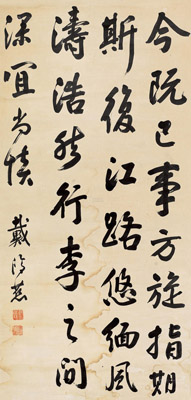 今阮已事方旋指期
斯復江路悠緬風
濤浩然行李之間
深宜尚慎
戴鴻慈